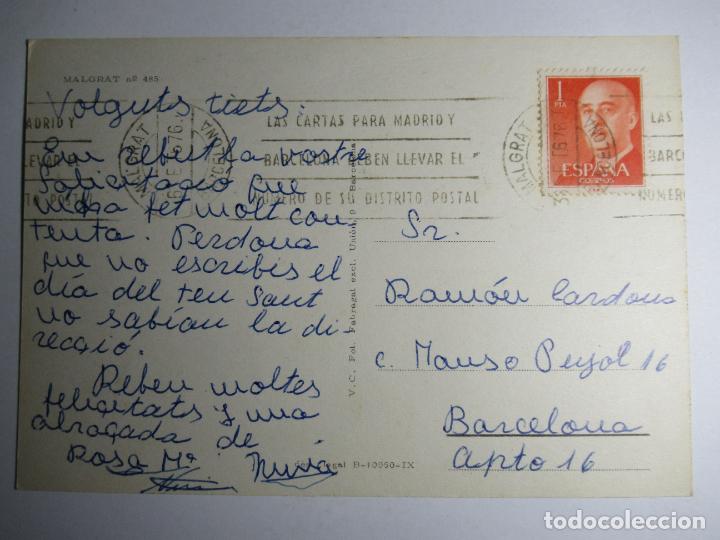 MALGRAT nº 485
Volguts tiets:
hem rebut la vostre
felicitació que
m'ha fet molt con
tenta. Perdona
que no escribis el
día del teu Sant
no sabíau la di-
recció.
Reben moltes
felicitats y una
abraçada de
Rosa Mª Nuria
V. C. Fot. Fabregat excl. Unión, Barcelona
Legal B-10950-IX
LAS CARTAS PARA MADRID Y
BARCELONA DEBEN LLEVAR EL
NUMERO DE SU DISTRITO POSTAL
MALGRAT
BARCELONA
1
PTA
ESPAÑA
CORREOS
MALGRAT
BARCELONA
Sr.
Ramón Cardona
c. Manso Pujol 16
Barcelona
Apto 16
todocoleccion.net